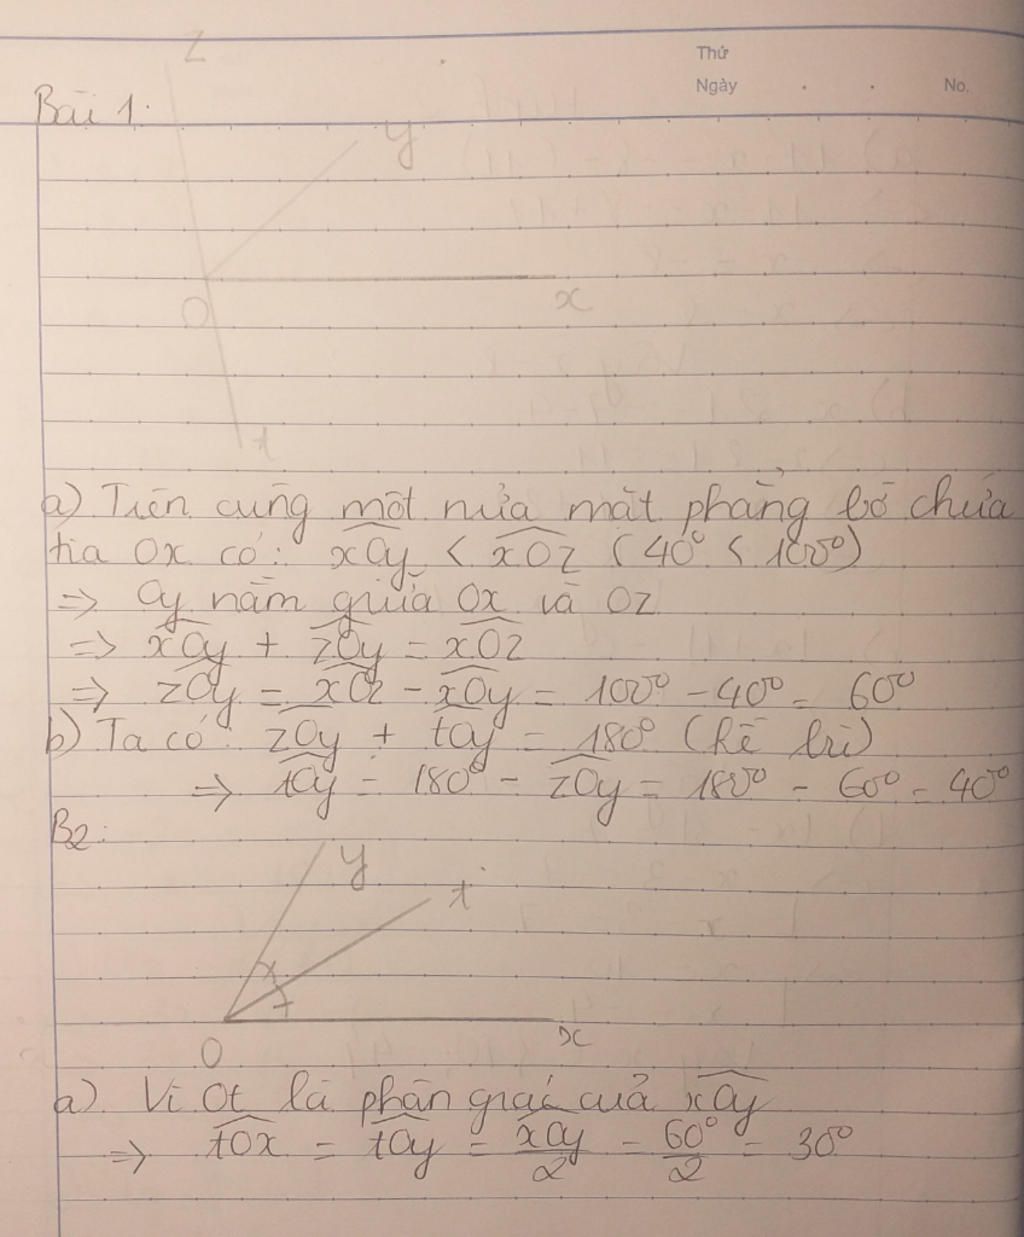 Thứ
Ngày . . No.
Bài 1:
z
y
O
x
t
a) Trên cùng một nửa mặt phẳng bờ chứa
tia Ox có: xOy < xOz (40° < 100°)
=> Oy nằm giữa Ox và Oz
=> xOy + zOy = xOz
=> zOy = xOz - xOy = 100° - 40° = 60°
b) Ta có: zOy + tOy = 180° (kề bù)
=> tOy = 180° - zOy = 180° - 60° = 40°
B2:
y
t
O
x
a) Vì Ot là phân giác của xOy
=> tOx = tOy = xOy/2 = 60°/2 = 30°